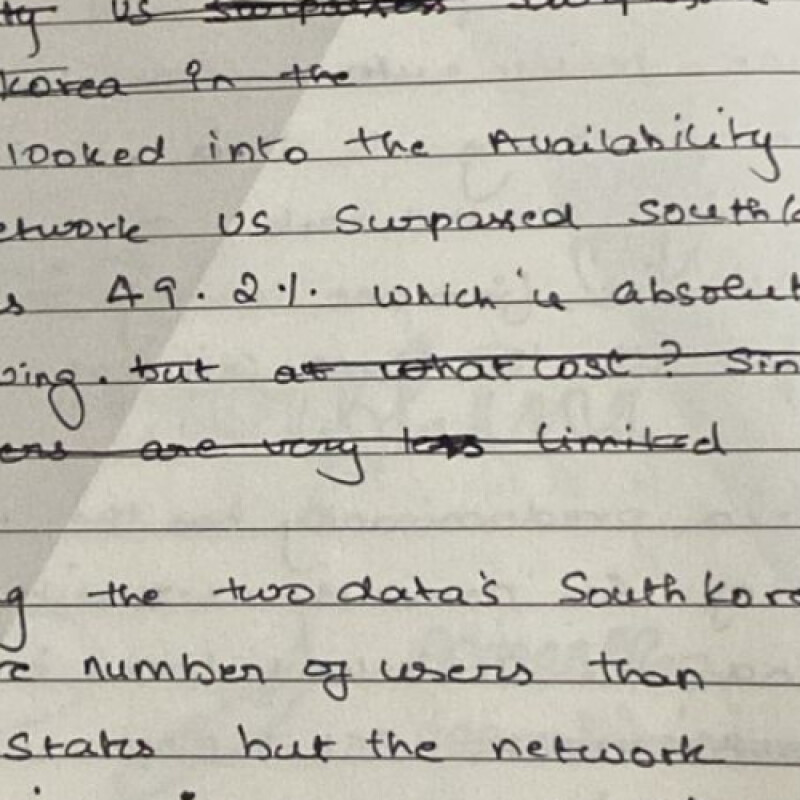 ty US surpasses
korea in the
looked into the Availability
etwork US Surpassed South
s 49.2%. which is absolut
ing. but at what cost? Sin
ers are very less limited
g the two data's South kore
number of users than
States but the network